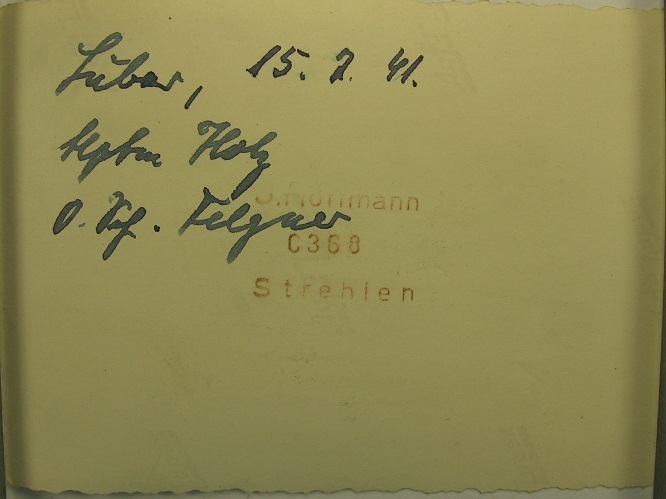 Lubar, 15. 7. 41.
Hptm Holz
O. Sch. Felgner
Hoffmann
0368
Strehlen